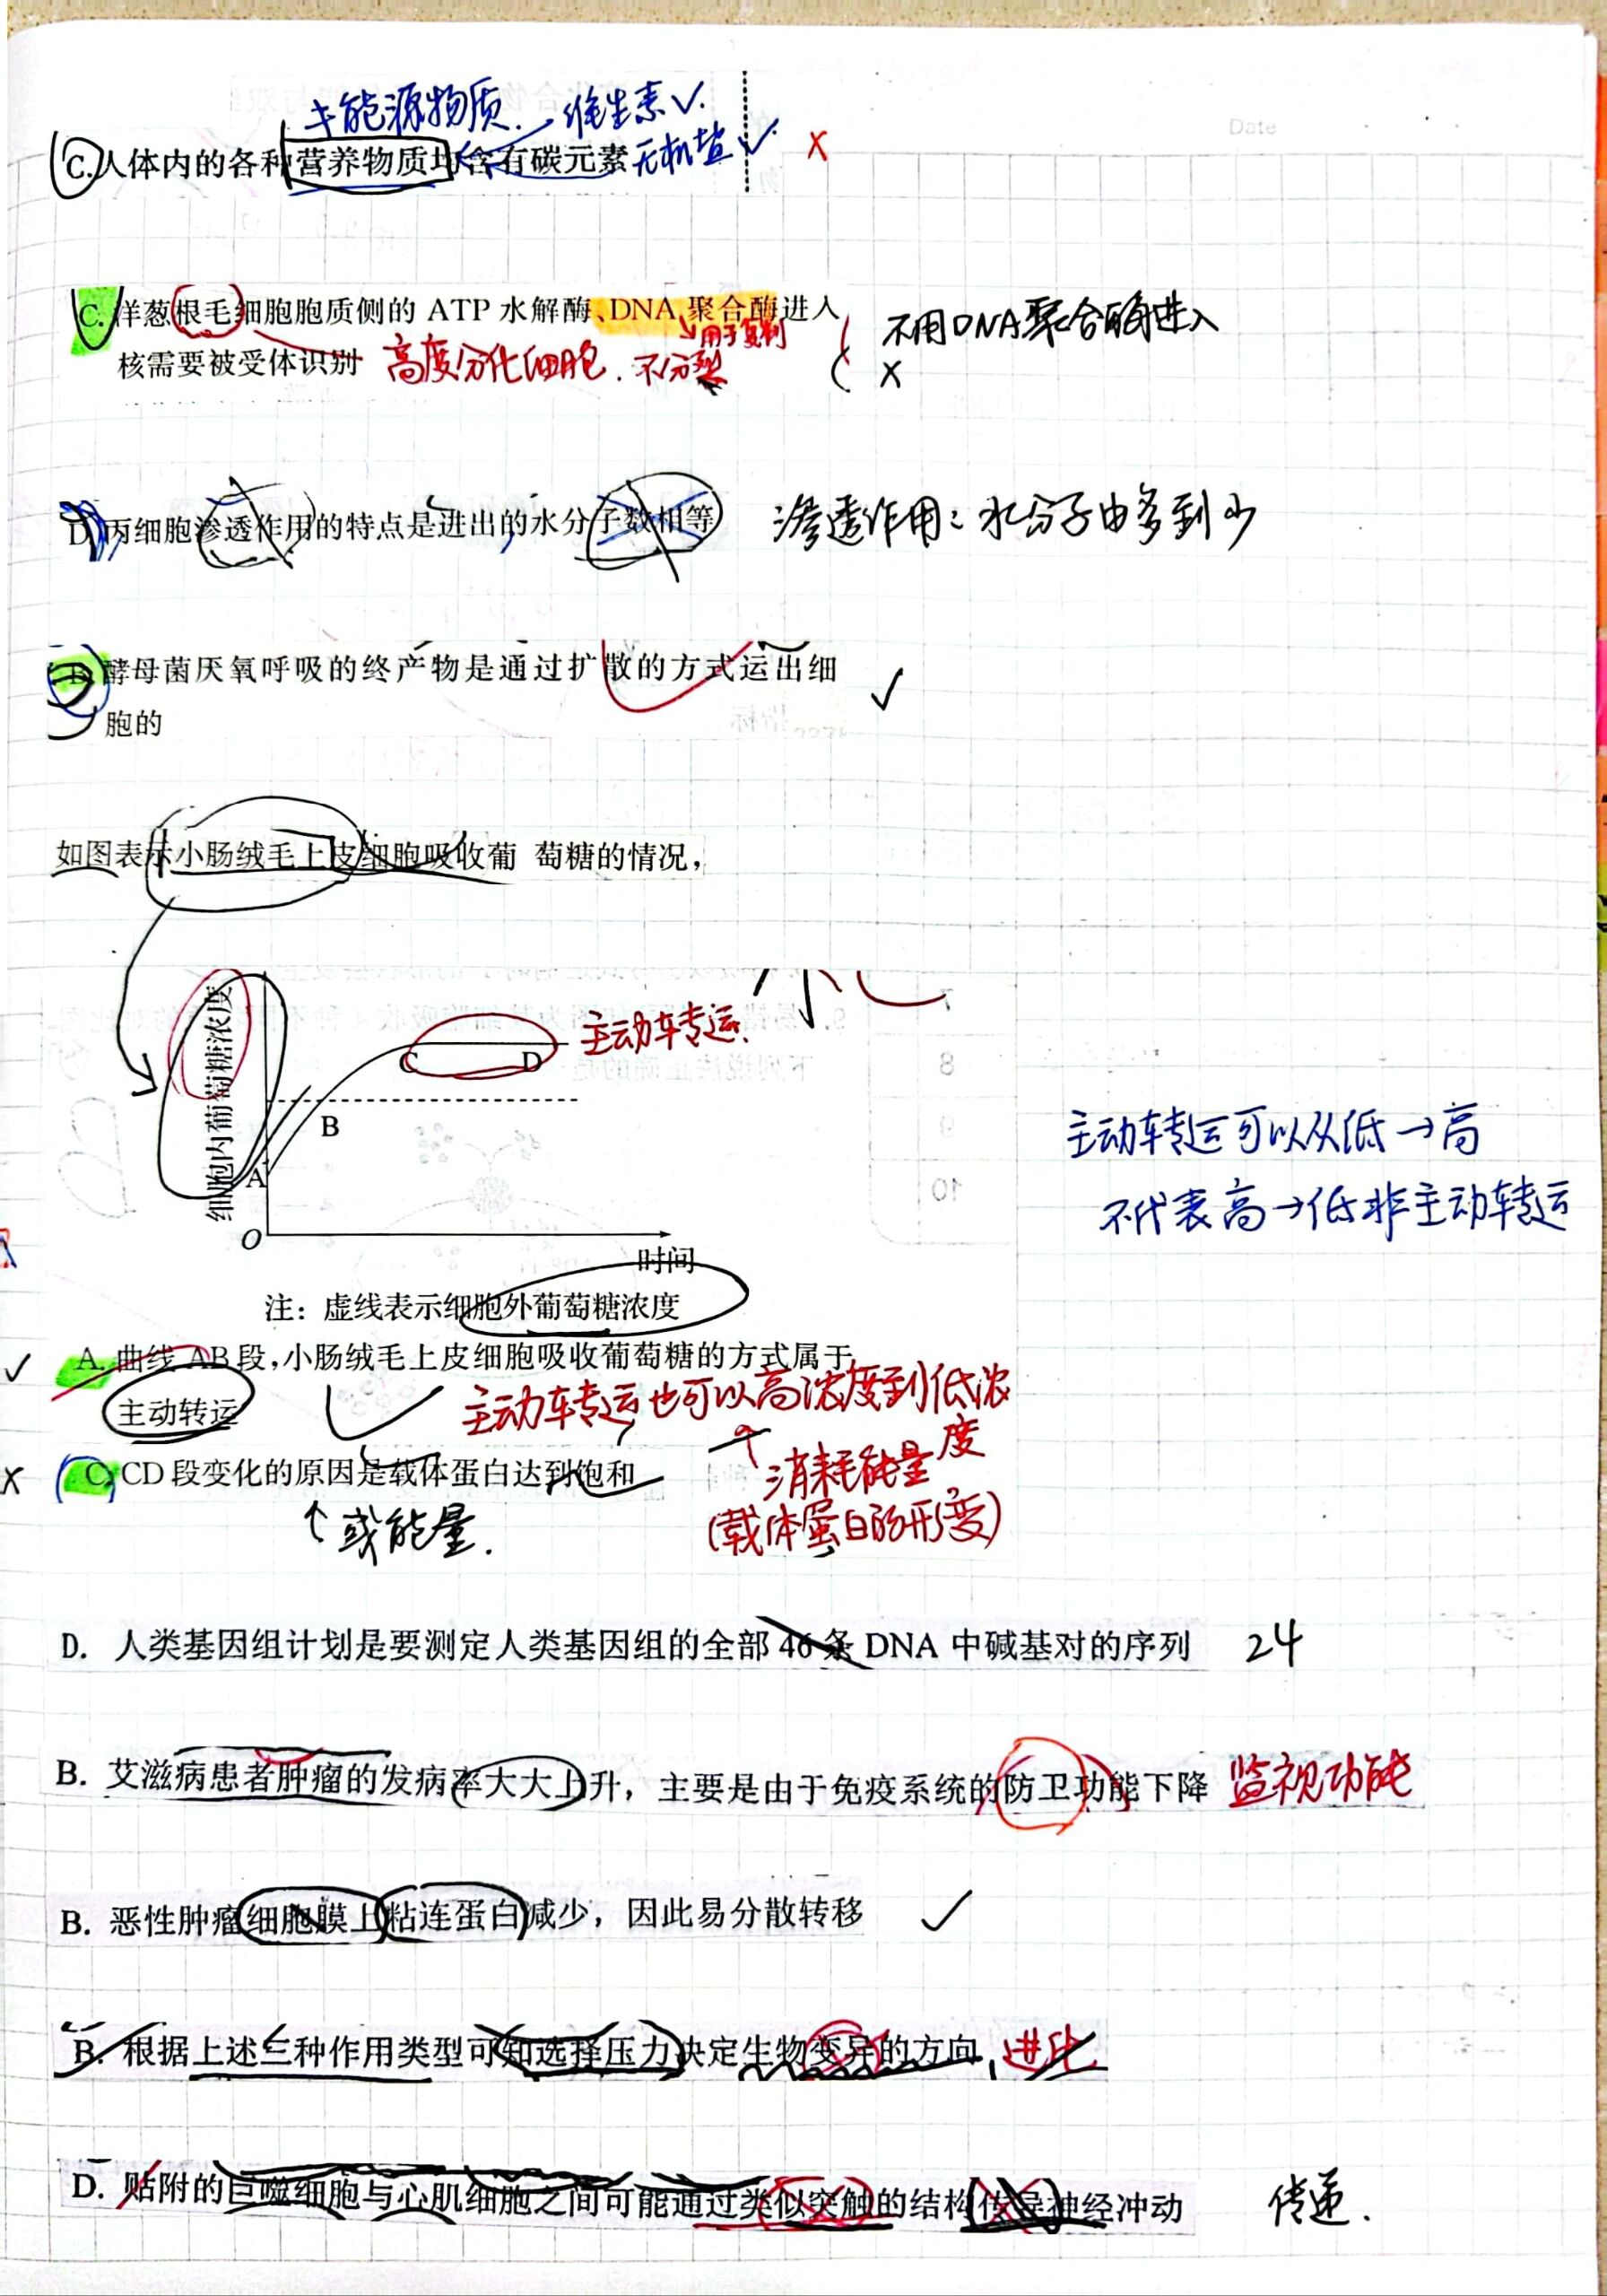 Date
丰能源物质. 维生素√.
C.人体内的各种营养物质均含有碳元素 无机盐√ ×
C. 洋葱根毛细胞胞质侧的 ATP 水解酶、DNA 聚合酶进入
用于复制
不用DNA聚合酶进入
核需要被受体识别 高度分化细胞. 不分裂
×
D.丙细胞渗透作用的特点是进出的水分子数相等 渗透作用: 水分子由多到少
酵母菌厌氧呼吸的终产物是通过扩散的方式运出细 √
胞的
如图表示小肠绒毛上皮细胞吸收葡 萄糖的情况,
细胞内葡萄糖浓度
C D 主动转运.
B
A
O
时间
主动转运可以从低→高
不代表高→低非主动转运
注: 虚线表示细胞外葡萄糖浓度
√ A. 曲线 AB 段,小肠绒毛上皮细胞吸收葡萄糖的方式属于
主动转运 √ 主动转运也可以高浓度到低浓度
↑ 消耗能量
× C. CD 段变化的原因是载体蛋白达到饱和
(载体蛋白的形变)
↑ 或能量.
D. 人类基因组计划是要测定人类基因组的全部 46 条 DNA 中碱基对的序列 24
B. 艾滋病患者肿瘤的发病率大大上升，主要是由于免疫系统的防卫功能下降 监视功能
B. 恶性肿瘤细胞膜上粘连蛋白减少，因此易分散转移 √
B. 根据上述三种作用类型可知选择压力决定生物变异的方向 进化
D. 贴附的巨噬细胞与心肌细胞之间可能通过类似突触的结构传导神经冲动 传递.